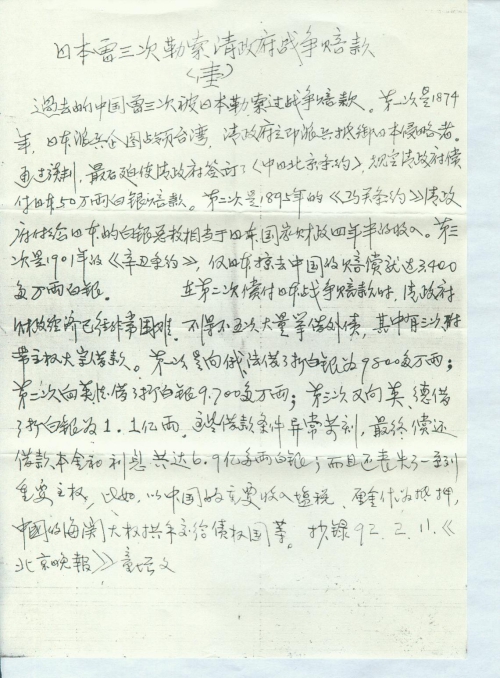 日本曾三次勒索清政府战争赔款
过去的中国曾三次被日本勒索过战争赔款。第一次是1874
年,日本派兵企图占领台湾,清政府立即派兵抵御日本侵略者。
通过谈判,最后迫使清政府签订了《中日北京条约》,规定清政府偿
付日本50万两白银赔款。第二次是1895年的《马关条约》清政
府付给日本的白银总数相当于日本国家财政四年半的收入。第三
次是1901年的《辛丑条约》,仅日本掠去中国的赔偿就达3400
多万两白银。 在第二次偿付日本战争赔款时,清政府
财政经济已经非常困难,不得不五次大量筹借外债,其中有三次附
带主权大宗借款。第一次是向俄法借了折白银为9800多万两;
第二次向英德借了折白银9.700多万两;第三次又向英、德借
了折白银为1.1亿两。这些借款条件异常苛刻,最终偿还
借款本金和利息共达6.9亿多两白银;而且还丧失了一系列
重要主权,比如,以中国的主要收入盐税、厘金作为抵押,
中國的海関大权拱手交给债权国等。抄録92.2.11.《
北京晚報》